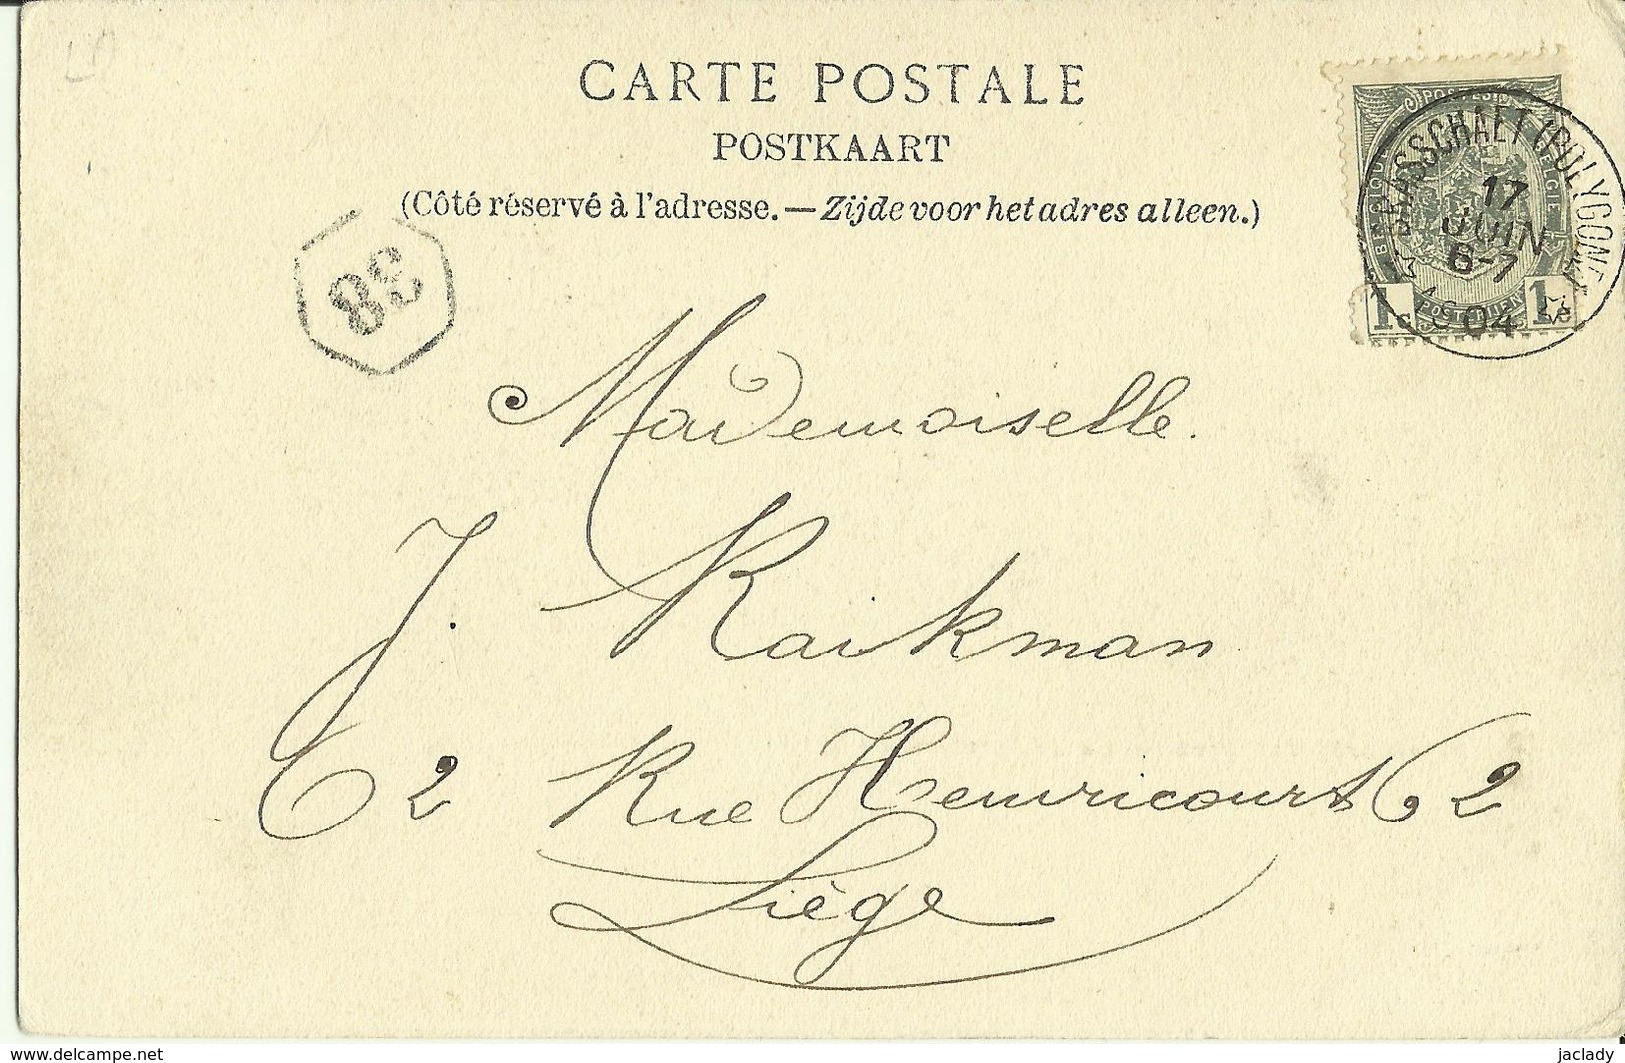 CARTE POSTALE
POSTKAART
(Côté réservé à l'adresse.—Zijde voor het adres alleen.)
BRASSCHAET (POLYGONE)
17
JUIN
6-7
1904
1c 1c
38
Mademoiselle
J. Raikman
62 Rue Hemricourt 62
Liège
www.delcampe.net
jaclady